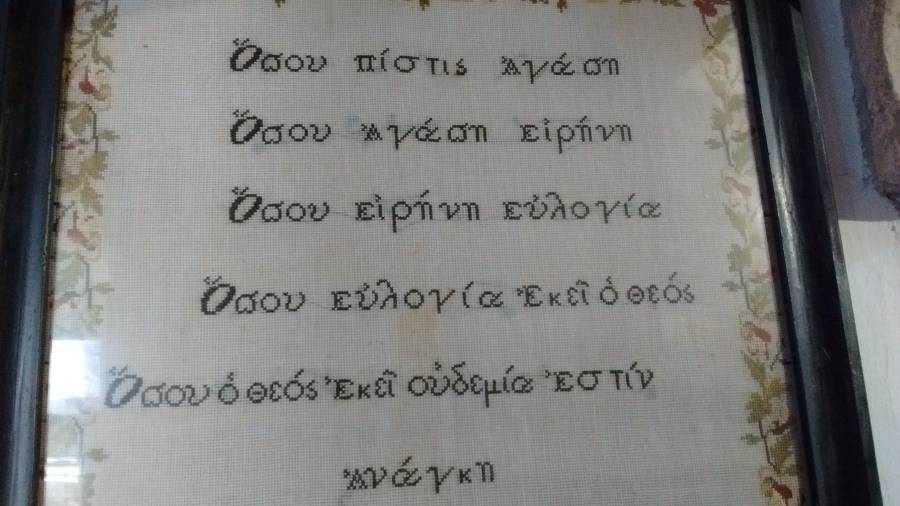 Ὅϖου πίστις Ἀγάϖη
Ὅϖου Ἀγάϖη εἰρήνη
Ὅϖου εἰρήνη εὐλογία
Ὅϖου εὐλογία Ἐκεῖ ὁ θεός
Ὅϖου ὁ θεός Ἐκεῖ οὐδεμία Ἐστίν
Ἀνάγκη